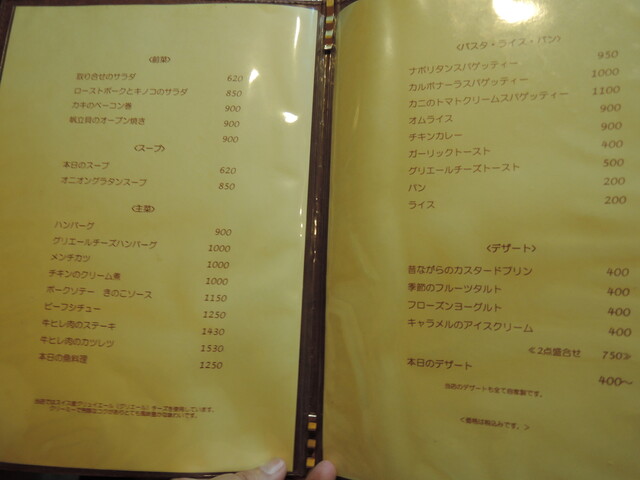 <前菜>
取り合せのサラダ 620
ローストポークとキノコのサラダ 850
カキのベーコン巻 900
帆立貝のオーブン焼き 900
900
<スープ>
本日のスープ 620
オニオングラタンスープ 850
<主菜>
ハンバーグ 900
グリエールチーズハンバーグ 1000
メンチカツ 1000
チキンのクリーム煮 1000
ポークソテー きのこソース 1150
ビーフシチュー 1250
牛ヒレ肉のステーキ 1430
牛ヒレ肉のカツレツ 1530
本日の魚料理 1250
当店ではスイス産グリュイエール(グリエール)チーズを使用しています。
クリーミーで特徴なコクがありとても風味豊かな味わいです。
<パスタ・ライス・パン>
ナポリタンスパゲッティー 950
カルボナーラスパゲッティー 1000
カニのトマトクリームスパゲッティー 1100
オムライス 900
チキンカレー 900
ガーリックトースト 400
グリエールチーズトースト 500
パン 200
ライス 200
<デザート>
昔ながらのカスタードプリン 400
季節のフルーツタルト 400
フローズンヨーグルト 400
キャラメルのアイスクリーム 400
≪2点盛合せ 750≫
本日のデザート 400〜
当店のデザートも全て自家製です。
<価格は税込みです。>